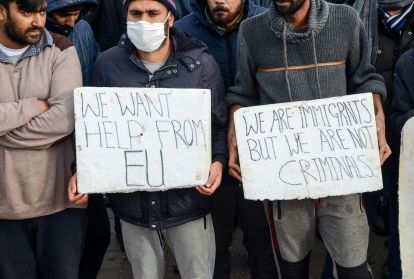 WE WANT
HELP FROM
EU
WE ARE IMMIGRANTS
BUT WE ARE NOT
CRIMINALS